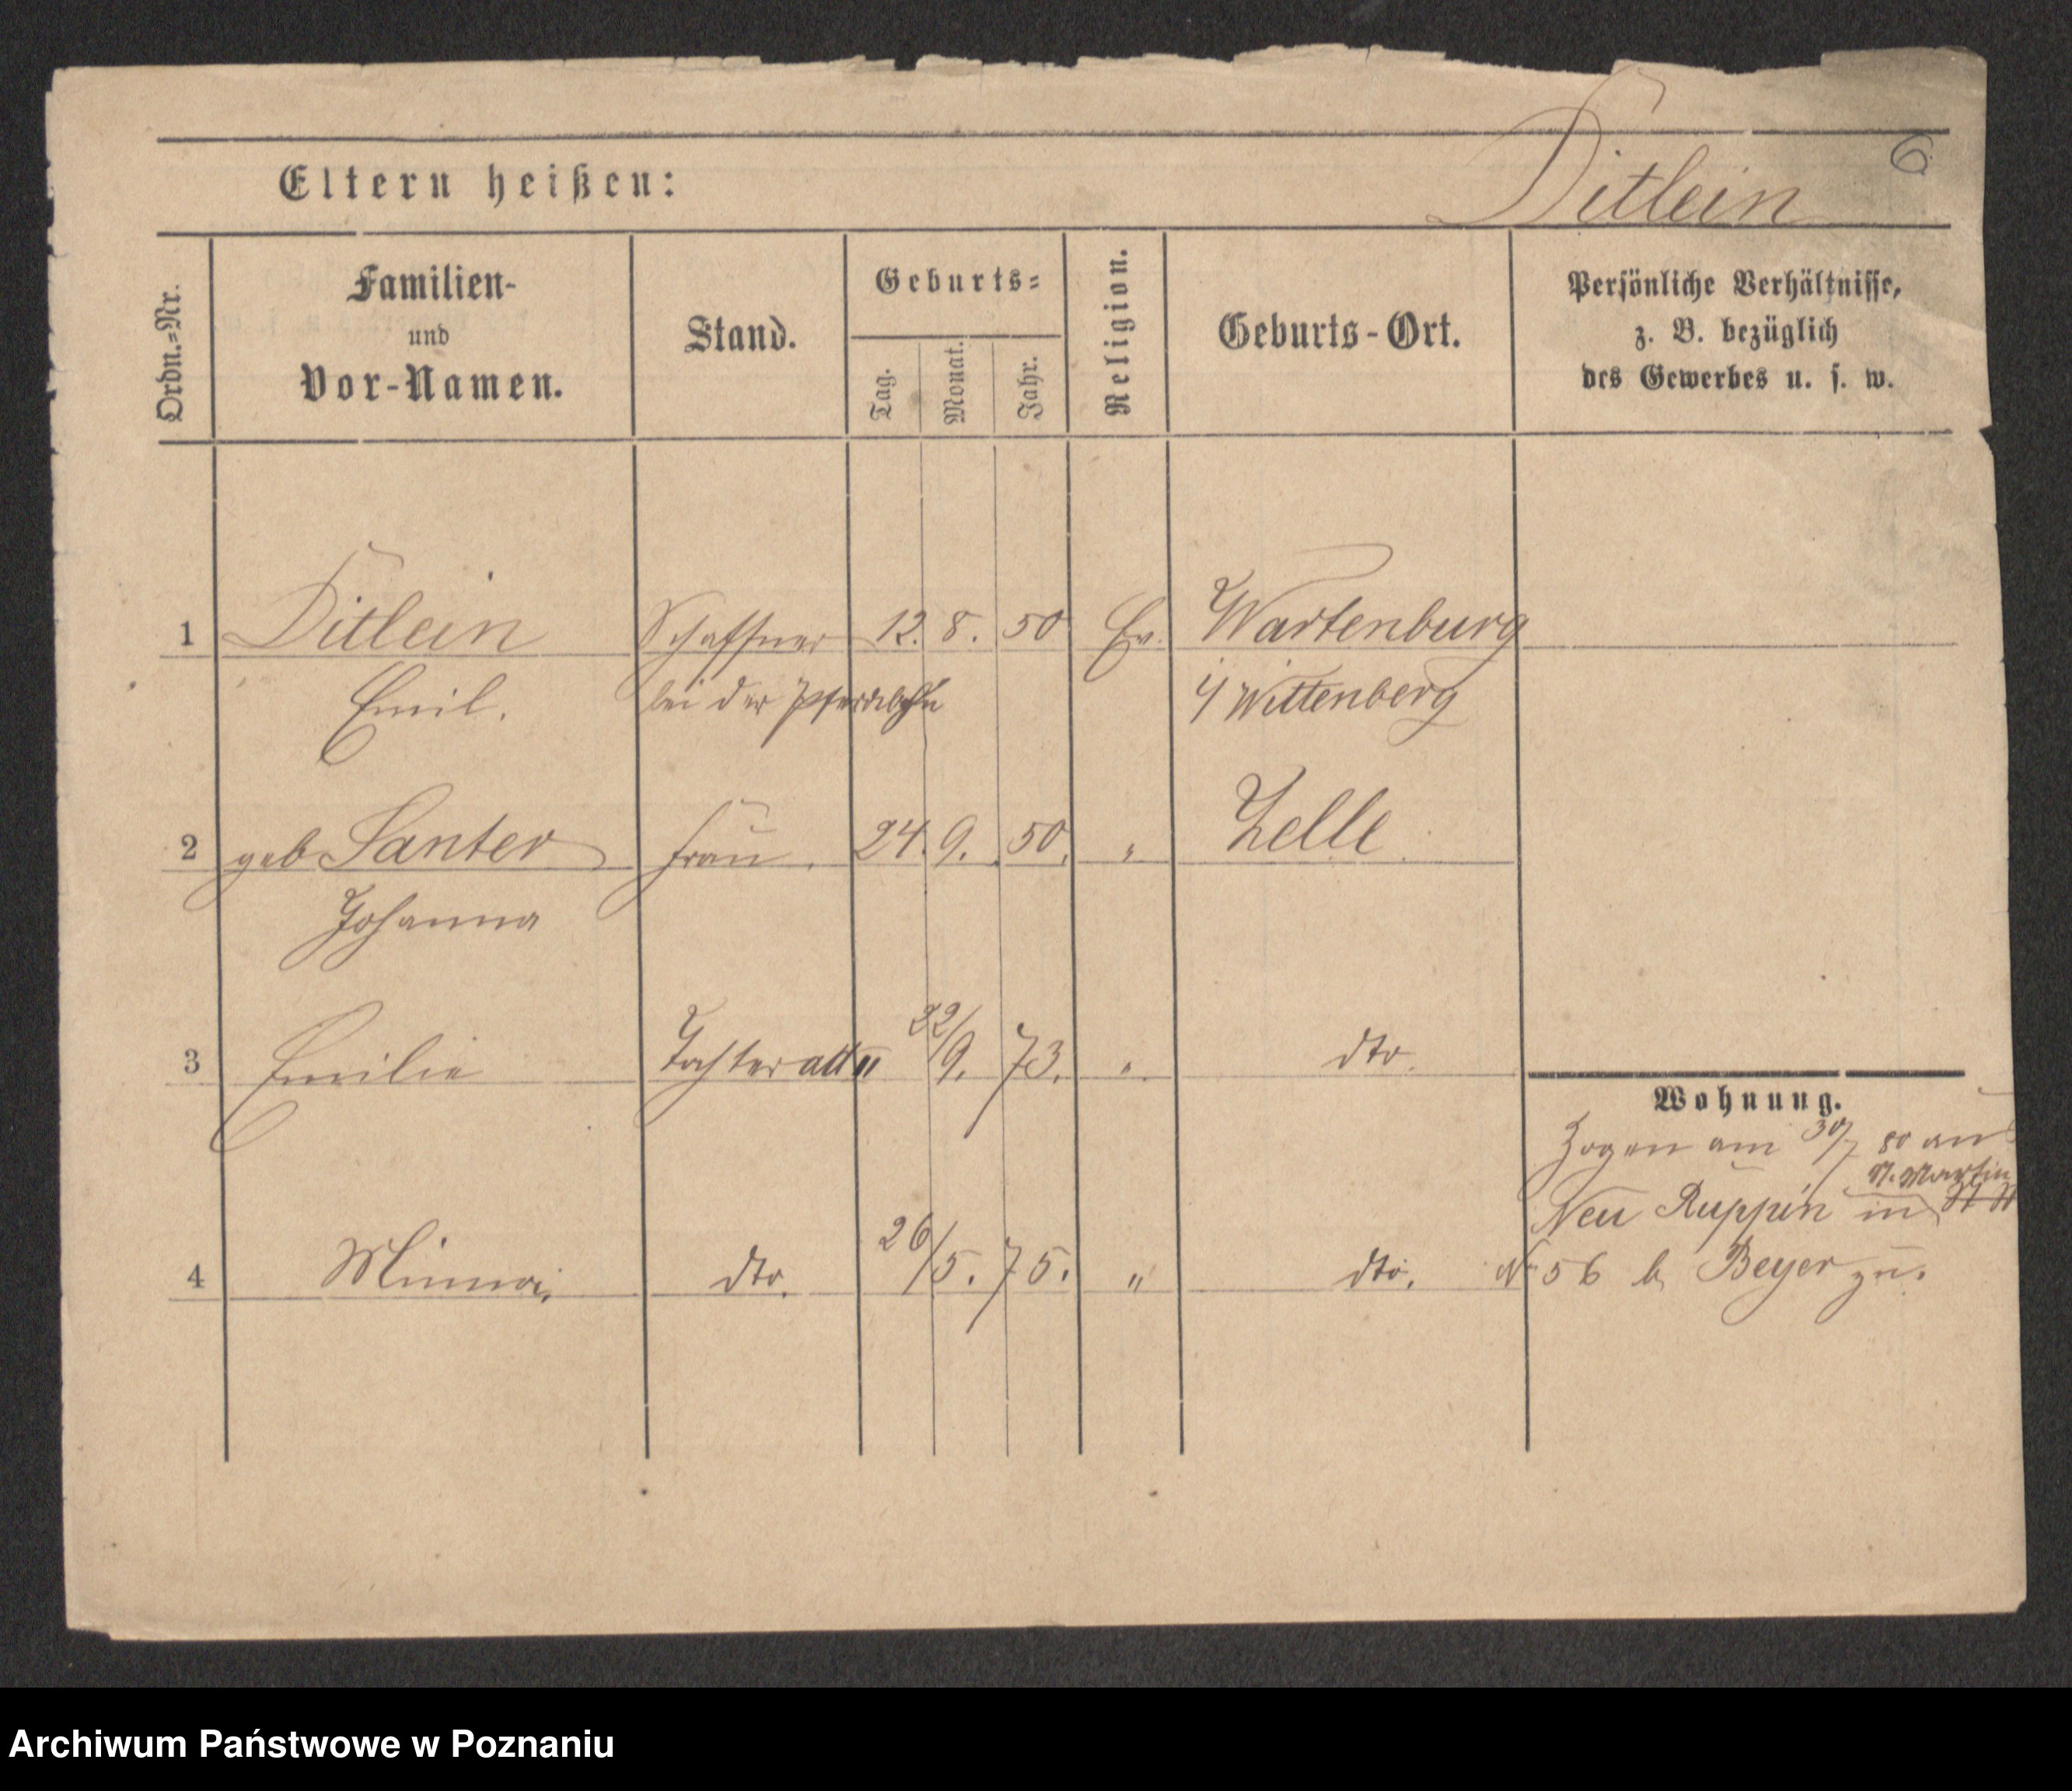 6
Eltern heißen:
Ditlein
Ordn.=Nr.
Familien-
und
Vor-Namen.
Stand.
Geburts=
Tag.
Monat.
Jahr.
Religion.
Geburts-Ort.
Persönliche Verhältnisse,
z. B. bezüglich
des Gewerbes u. s. w.
1 Ditlein Schaffner 12. 8. 50 Ev. Wartenburg
Emil. bei der Pferdebahn i/ Wittenberg
2 geb Santer Frau. 24. 9. 50. " Zelle
Johanna
3 Emilie Tochter 22/9. 73. " dto.
Wohnung.
Zogen am 30/7 80 aus
St. Martin
Neu Ruppin in
4 Minna. dto. 26/5. 75. " dto.
No 56 b Beyer zu.
Archiwum Państwowe w Poznaniu